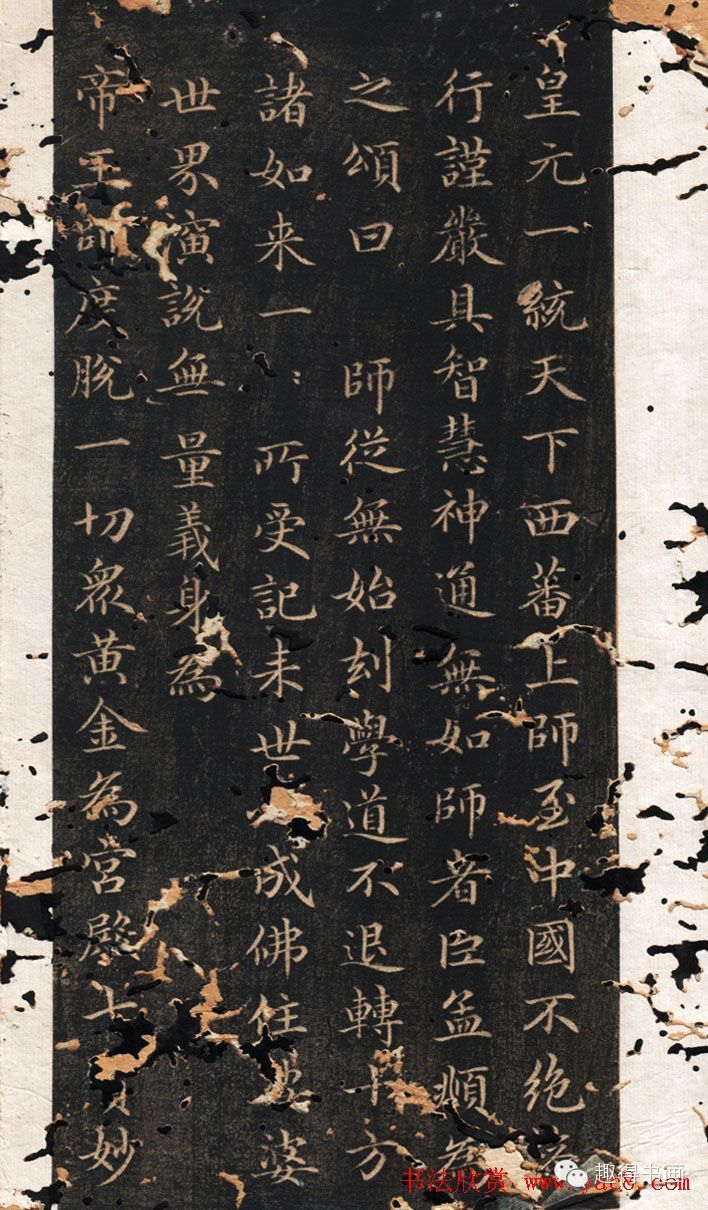 皇元一統天下西蕃上師至中國不絕
行謹嚴具智慧神通無如師者臣孟頫為
之頌曰 師從無始刻學道不退轉十方
諸如来一〻所受記来世成佛住娑婆
世界演説無量義身為
帝王師度脫一切眾黃金為宮殿七寶妙
书法欣赏 www.yac8.com
趣得书画